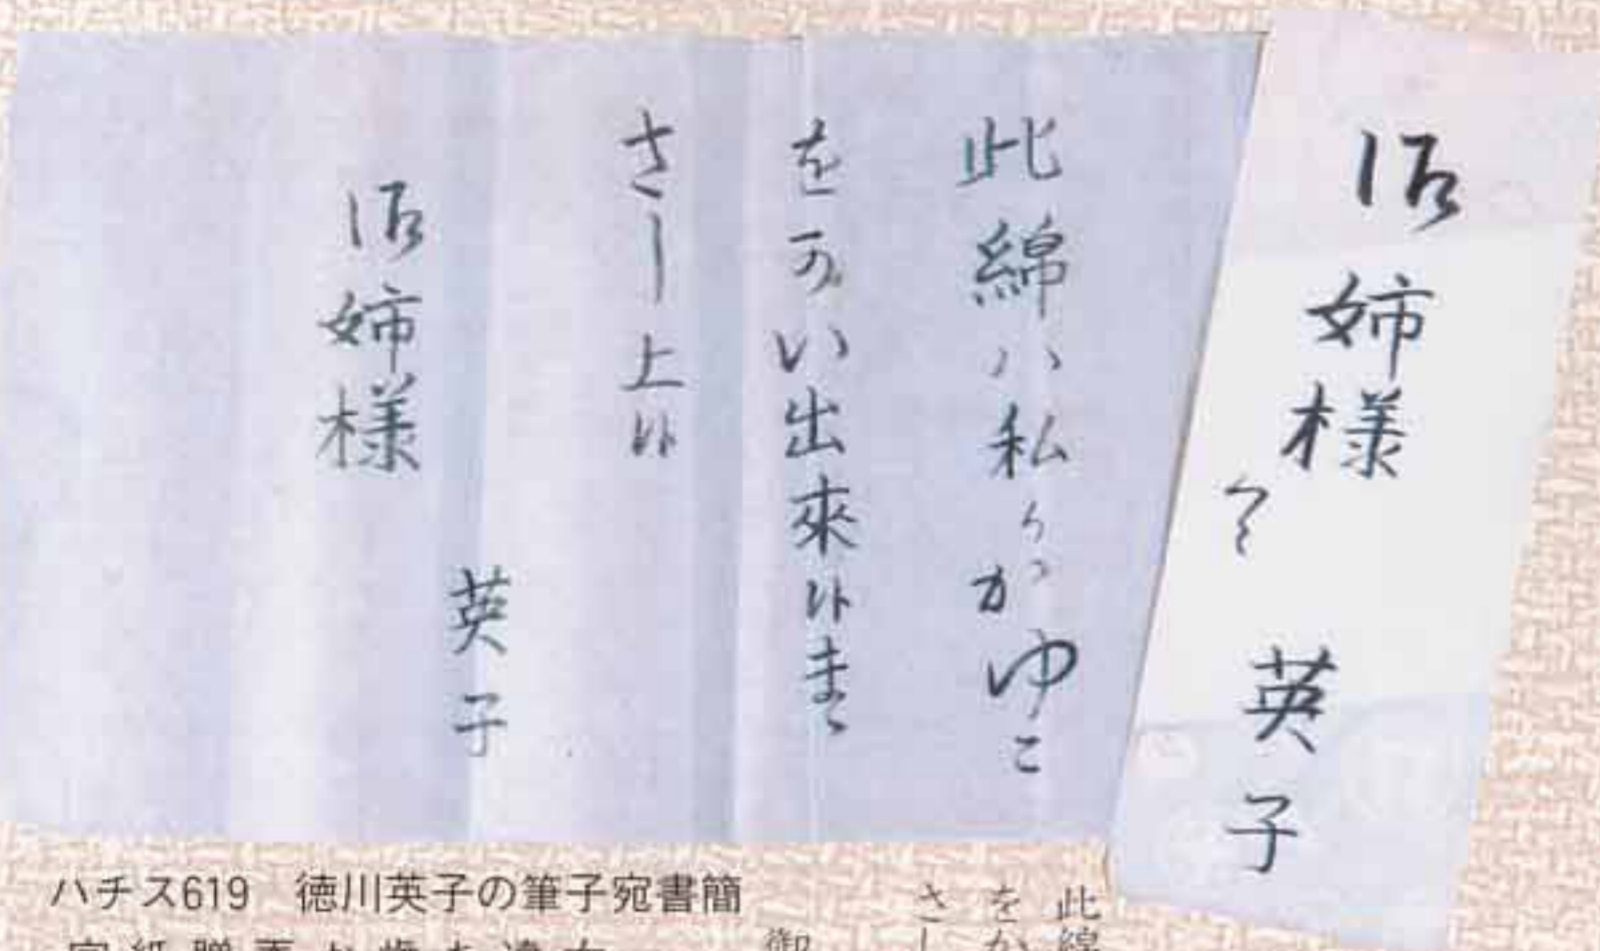 御姉様
英子
此綿ハ私かゆこ
をかい出來候まゝ
さし上候
英子
御姉様
ハチス619　徳川英子の筆子宛書簡
此綿
をか
さし
御